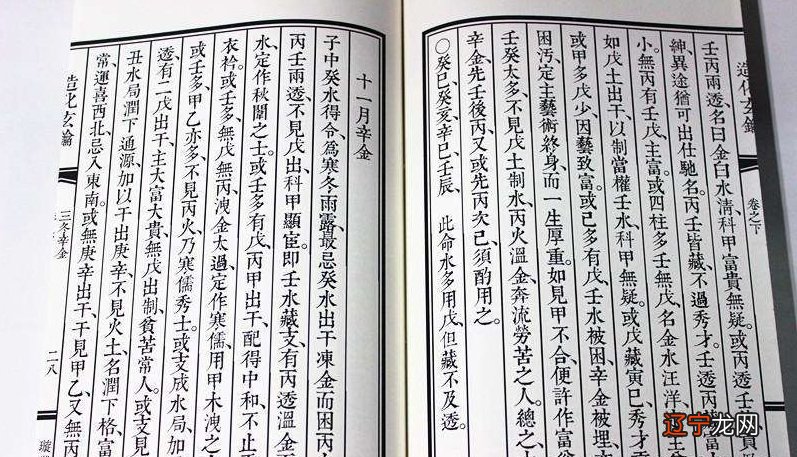 造化玄鑰
卷之下
壬丙兩透、名曰金白水清、科甲富貴無疑、或丙透壬
紳、異途猶可出仕馳名、丙壬皆藏、不過秀才。壬透丙藏
小。無丙有壬戊、主富。或四柱多壬無戊、名金水汪洋、
如戊土出干、以制當權壬水、科甲無疑。或戊藏寅巳、秀才
或甲多戊少、因藝致富。或己多有戊、壬水被困、辛金被埋、
困污、定主藝術終身、而一生厚重。如見甲不合、便許作富
壬癸太多、不見戊土制水、丙火溫金、奔流勞苦之人。總之、
辛金先壬後丙、又或先丙次己、須酌用之。
○癸巳、癸亥、辛巳、壬辰、 此命水多用戊、但藏不及透。
十一月辛金
子中癸水得令、爲寒冬雨露、最忌癸水出干、凍金而困丙
丙壬兩透、不見戊出、科甲顯宦。即壬水藏支、有丙透溫金
水、定作秋闈之士。或壬多有戊、丙甲出干、配得中和、不止
衣衿。或壬多、無戊無丙、洩金太過、定作寒儒、用甲木洩之
或壬多、甲乙亦多、不見丙火、乃寒儒秀士。或支成水局、加
透、有二戊出干、主大富大貴、無戊出制、貧苦常人。或支見
丑水局、潤下通源、加以干出庚辛、不見火土、名潤下格、富
常、運喜西北、忌入東南。或無庚辛出干、干見甲乙、又無丙
造化玄鑰
三冬辛金
二八